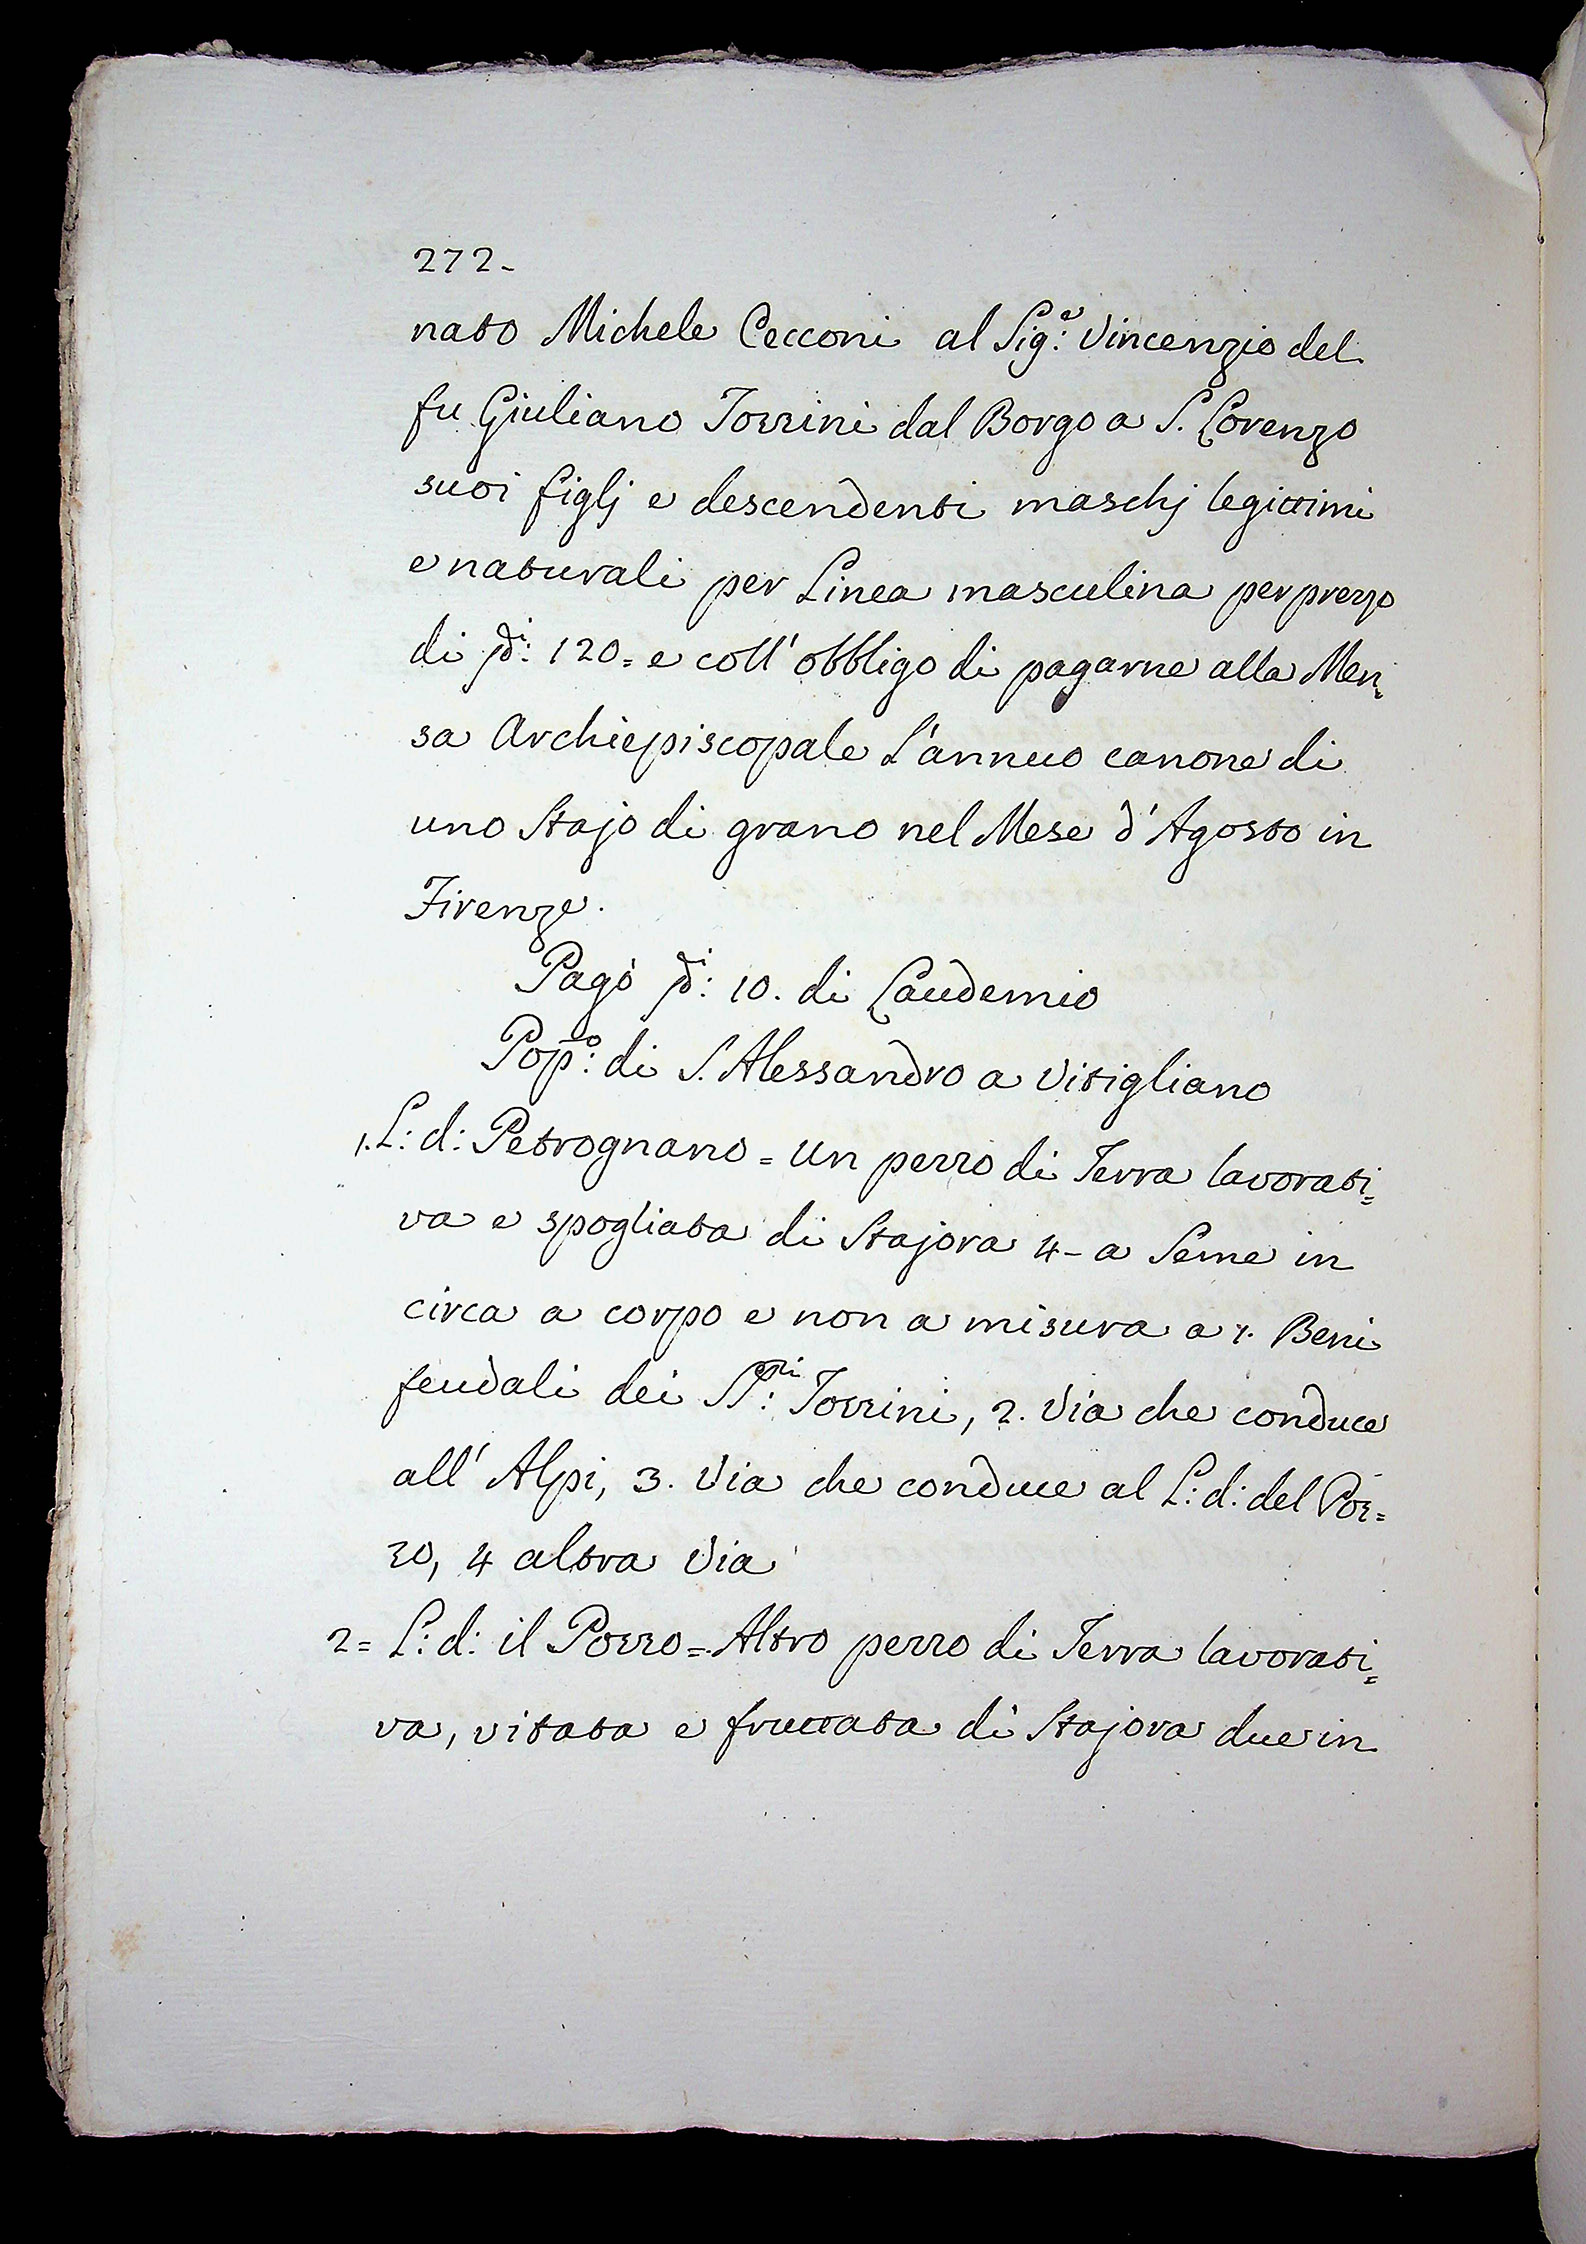 272-
nato Michele Cecconi al Sig:e Vincenzio del
fu Giuliano Torrini dal Borgo a S. Lorenzo
suoi figlj e descendenti maschj legittimi
e naturali per Linea masculina per prezzo
di di: 120= e coll' obbligo di pagarne alla Men=
sa Archiepiscopale l'annuo canone di
uno Stajo di grano nel Mese d'Agosto in
Firenze.
Pagò di: 10. di Laudemio
Pop:o di S. Alessandro a Vitigliano
1. L: d: Petrognano = Un pezzo di Terra lavorati=
va e spogliata di Stajora 4- a Seme in
circa a corpo e non a misura a 1. Beni
feudali dei SS:ri Torrini, 2. Via che conduce
all' Alpi, 3. Via che conduce al L: d: del Poz=
zo, 4 altra Via
2= L: d: il Pozzo = Altro pezzo di Terra lavorati=
va, vitata e fruttata di Stajora due in